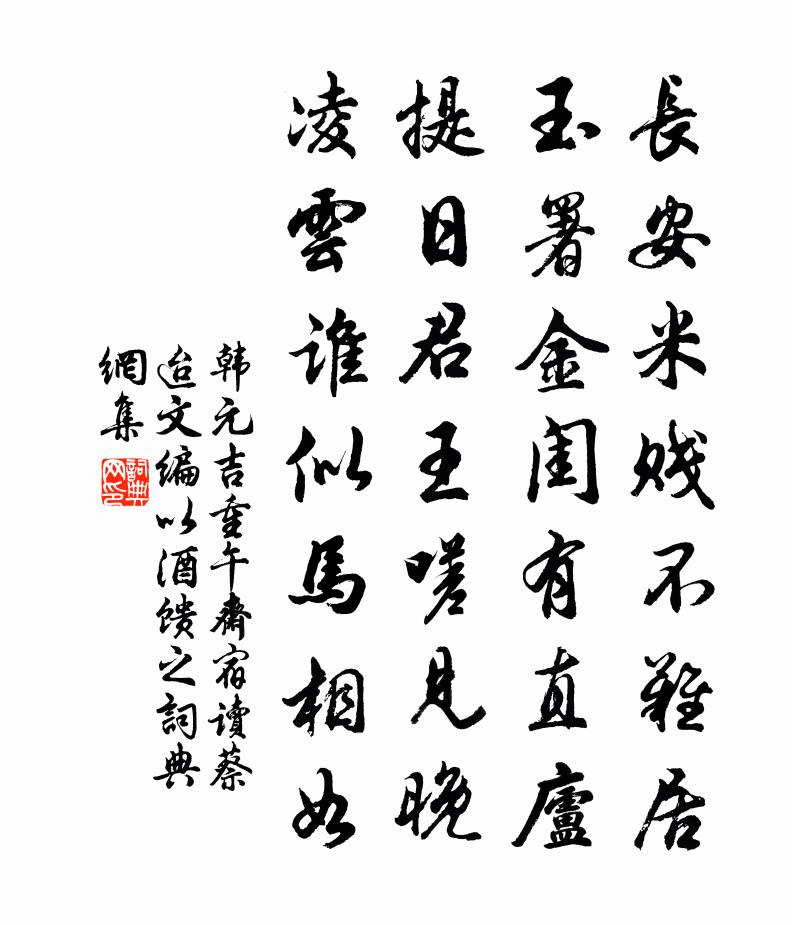 長安米賤不難居
玉署金閨有直廬
提日君王嗟見晚
凌雲誰似馬相如
韩元吉重午齋宿讀蔡
迨文编以酒馈之詞典
網集
詞典网印